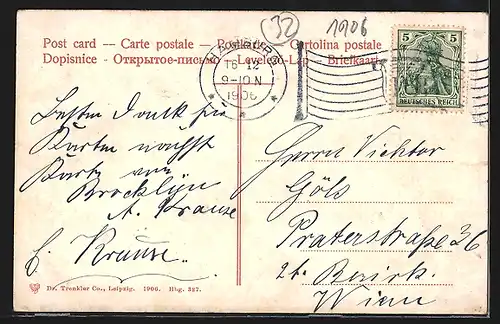 32
1906
Post card — Carte postale — Postkarte — Cartolina postale
Dopisnice - Открытое-письмо - Levelező-Lap - Briefkaart
HAMBURG
16 12
9-10 N
1906
5 5
DEUTSCHES REICH
Besten Dank für
Karten nächst
Karte von
Brocklÿn
A. Krause
E. Krause.
Herrn Vicktor
Göls
Praterstraße 36
2t. Bezirk.
Wien
Dr. Trenkler Co., Leipzig. 1906. Hbg. 387.